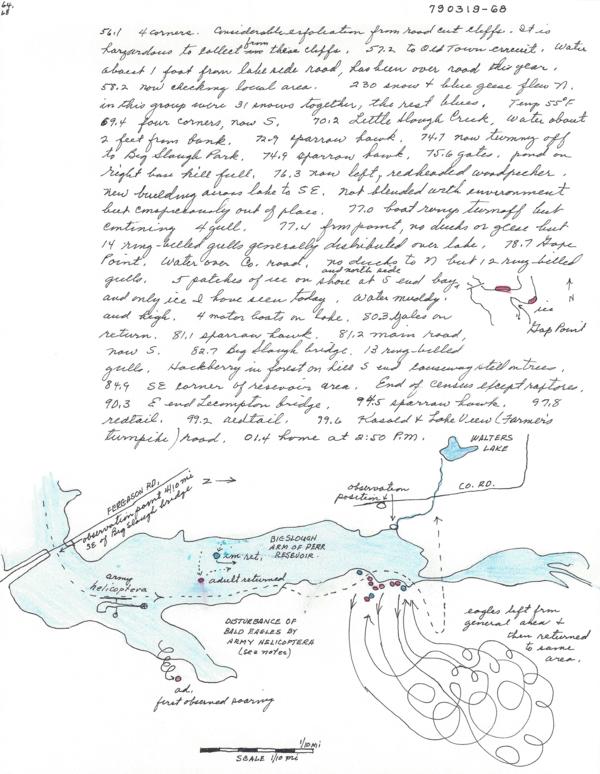 64.
68
790319-68
56.1 4 corners. Considerable exfoliation from road cut cliffs. It is
hazardous to collect from these cliffs. 57.2 to Old Town circuit. Water
about 1 foot from lake side road, has been over road this year.
58.2 now checking local area. 230 snow & blue geese flew N.
in this group were 31 snows together, the rest blues. Temp 55°F
69.4 four corners, now S. 70.2 Little Slough Creek, Water about
2 feet from bank. 72.9 sparrow hawk. 74.7 now turning off
to Big Slough Park. 74.9 sparrow hawk. 75.6 gates. pond on
right base hill full. 76.3 now left, redheaded woodpecker.
new building across lake to SE. Not blended with environment
but conspicuously out of place. 77.0 boat ramp turnoff but
contining 4 gull. 77.4 frm point, no ducks or geese but
14 ring-billed gulls generally distributed over lake. 78.7 Gape
Point. Water over Co. road. no ducks to N but 12 ring-billed
gulls. 5 patches of ice on shore at S end bay, and north side
and only ice I have seen today. Water muddy.
and high. 4 motor boats on lake. 80.3 Gales on
return. 81.1 sparrow hawk. 81.2 main road,
now S. 82.7 Big Slough bridge. 13 ring-billed
gulls. Hackberry in forest on hill S end causeway still on trees.
84.9 SE corner of resevoir area. End of Census except raptores.
90.3 E end Lecompton bridge. 94.5 sparrow hawk. 97.8
redtail. 99.2 redtail. 99.6 Kasold & Lake View (Farmer's
turnpike) road. 01.4 home at 2:50 P.M.
N
ice
Gap Point
WALTERS
LAKE
CO. RD.
observation
position
FERGASON RD.
observation point 4/10 mi
SE of Big Slough bridge
N
BIG SLOUGH
ARM OF PERR
RESEVOIR
imm ret.
adult returned
army
helicoptera
DISTURBANCE OF
BALD EAGLES BY
ARMY HELICOPTERA
(see notes)
eagles left frm
general area &
then returned
to same
area.
ad.
first observed soaring
1/10 mi
SCALE 1/10 mi